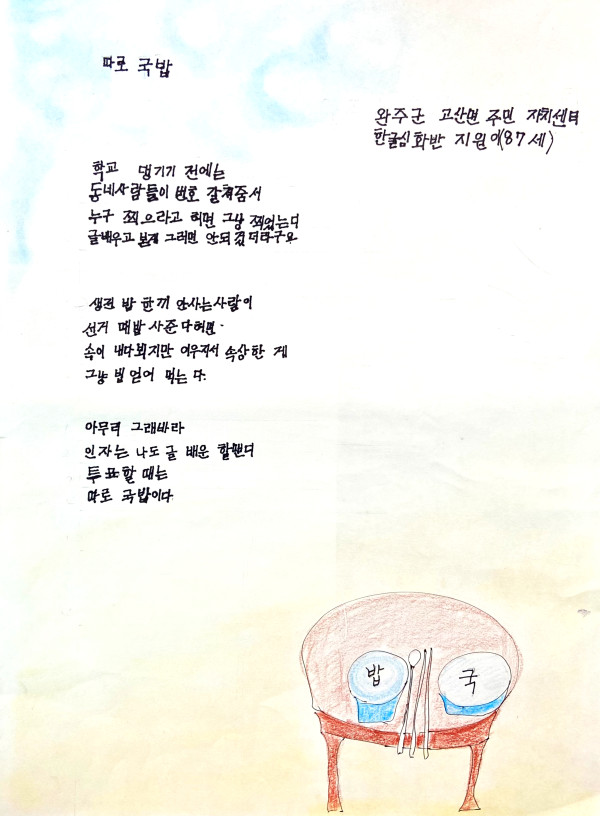 따로 국밥
완주군 고산면 주민 자치센터
한글심화반 지원이(87세)
학교 댕기기 전에는
동네사람들이 번호 갈쳐줌서
누구 찍으라고 허면 그냥 찍었는디
글배우고 본게 그러면 안되겄더라구요
생전 밥 한끼 안사는사람이
선거 때밥 사준다허면
속이 내다뵈지만 여우져서 속상한 게
그냥 밥 얻어 먹는다.
아무리 그래바라
인자는 나도 글 배운 할맨디
투표할 때는
따로 국밥이다
밥
국